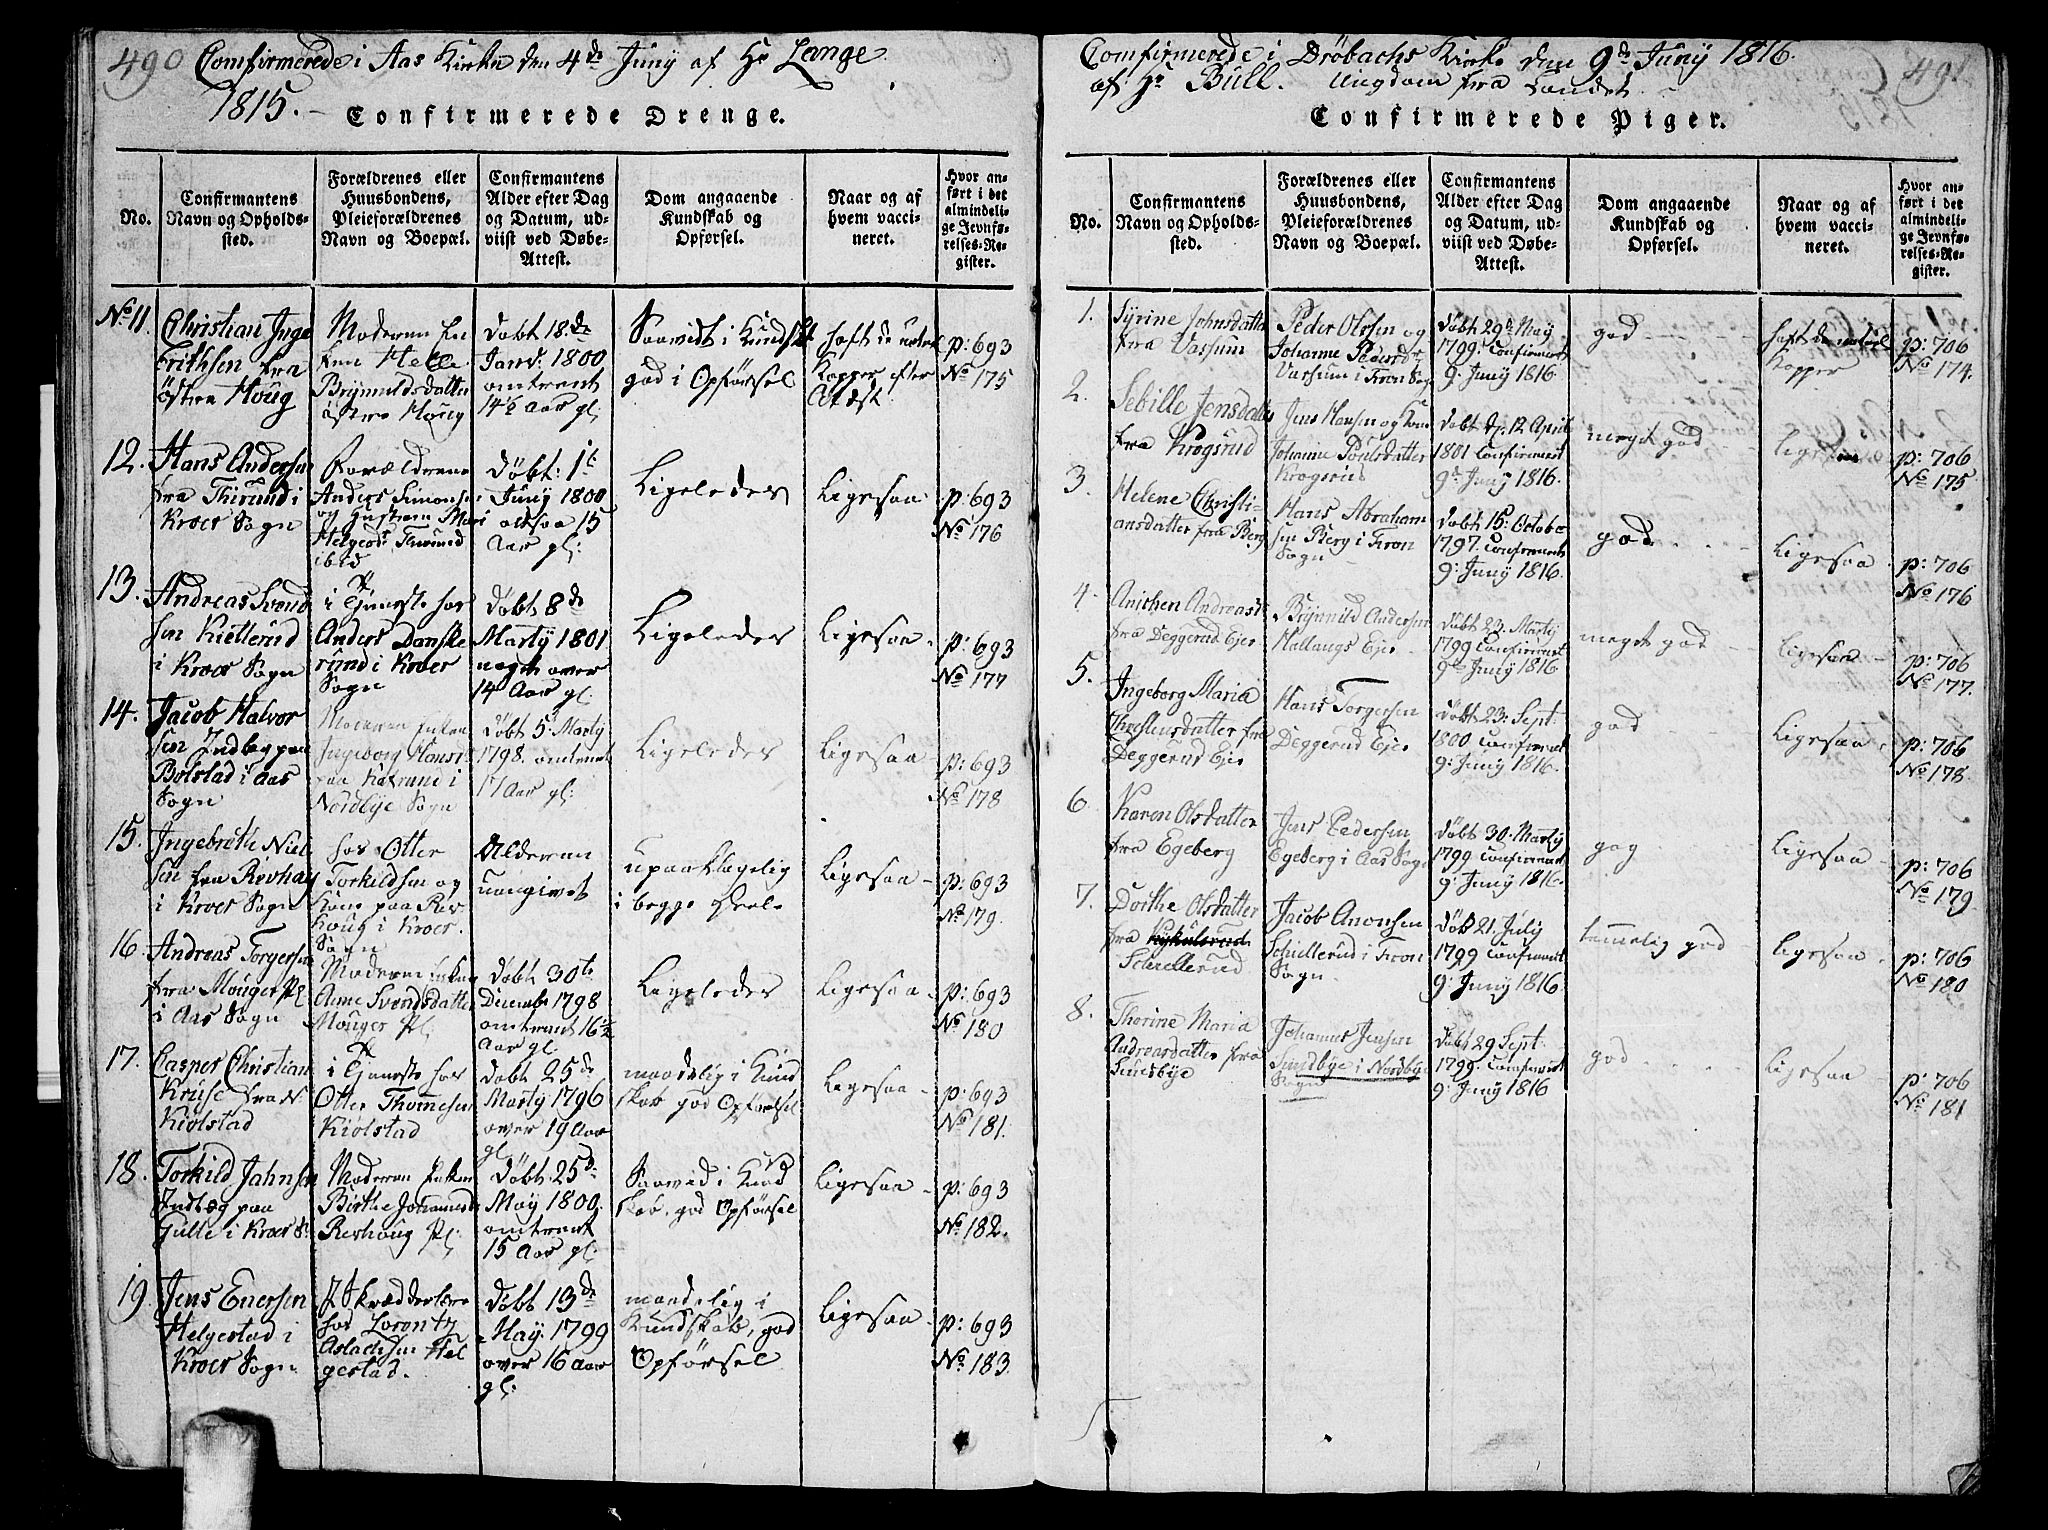 490 Comfirmerede i Aas Kirke den 4de Juny af Hr Lange
1815.
Confirmerede Drenge.
No.
Confirmantens
Navn og Opholds-
sted.
Forældrenes eller
Huusbondens,
Pleieforældrenes
Navn og Boepæl.
Confirmantens
Alder efter Dag
og Datum, ud-
viist ved Døbe-
Attest.
Dom angaaende
Kundskab og
Opførsel.
Naar og af
hvem vacci-
neret.
Hvor an-
ført i det
almindeli-
ge Jevnfø-
relses-Re-
gister.
No 11.
Christian
Erichsen fra
østre Houg
Moderen En
ken Helle
Brynnildsdatter
østre Houg
Døbt 18de
Janv: 1800
omtrent
14½ Aar gl:
Saavidt i Kundskb
god i Opførsel
haft de naturl
Kopper efter
Attest
p: 693
No 175
12.
Hans Andersen
fra Thirund i
Kroer Sogn
Forældrene
Anders Simonsen
og Hustrue Mari
Helgesd: Thirund
ibid
Døbt: 1te
Juny 1800
altsaa 15
Aar gl:
Ligeledes
Ligesaa
p: 693
No 176
13.
Andreas Svend
sen Kiellerud
i Kroer Sogn
i Tjeneste hos
Anders Danske
rund i Kroer
Sogn
Døbt 8de
Marty 1801
noget over
14 Aar gl.
Ligeledes
Ligesaa
p: 693
No 177
14.
Jacob Halvor
sen Indlæg paa
Bolstad i Aas
Sogn
Moderen Enken
Ingeborg Hansd:
paa i
Nordbye Sogn
Døbt 5: Marty
1798. omtrent
17 Aar gl:
Ligeledes
Ligesaa
p: 693
No 178
15.
Ingebreth Niel
sen fra Revhaug
i Kroer Sogn
hos Otter
Torkildsen og
Kone paa Rev
houg i Kroer
Sogn
Alderen
uangivet
upaaklagelig
i begge Deele
Ligesaa
p: 693
No 179.
16.
Andreas Torgersen
fra Mouger Pl
i Aas Sogn
Moderen Enken
Anne Svendsdatter
Mouger Pl.
Døbt 30te
Decembr 1798
omtrent 16½
Aar gl.
Ligeledes
Ligesaa
p: 693
No 180
17.
Casper Christian
Kruse fra N
Kiølstad
i Tjeneste hos
Otter Thomesen
Kiølstad
Døbt 25de
Marty 1796
over 19 Aar
gl.
maadelig i Kund
skab god Opførsel
Ligesaa
p: 693
No 181.
18.
Torkild Jahnsen
Indlæg paa
Gulle i Kroer S:
Moderen Enken
Birthe Johannesd:
Revhoug Pl:
Døbt 25d:
May 1800.
omtrent
15 Aar gl:
Saavid i Kund
skab, god Opførsel
Ligesaa
p: 693
No 182.
19.
Jens Enersen
Helgestad i
Kroer Sogn
hos Lorentz
Aslachsen Hel
gestad.
Døbt 13de
May. 1799
over 16 Aar
gl:
maadelig i
Kundskab, god
Opførsel
Ligesaa
p: 693
No 183.
Comfirmerede i Drøbachs Kirke den 9de Juny 1816.
af Hr Bull. Ungdom fra Landet.
491
Confirmerede Piger.
No.
Confirmantens
Navn og Opholds-
sted.
Forældrenes eller
Huusbondens,
Pleieforældrenes
Navn og Boepæl.
Confirmantens
Alder efter Dag
og Datum, ud-
viist ved Døbe-
Attest.
Dom angaaende
Kundskab og
Opførsel.
Naar og af
hvem vacci-
neret.
Hvor an-
ført i det
almindeli-
ge Jevnfø-
relses-Re-
gister.
1.
Syrine Johnsdatter
fra Vassum
Peder Olssen og
Johanne Pedersdt
Vassum i Fron Sog
Døbt 29de May
1799. Confirmert
9: Juny 1816.
god
haft de naturl
Kopper
p: 706
No 174.
2.
Sebille Jensdatter
fra Krogsrud
Jens Hansen og Kone
Johanne Poulsdatter
Krogsrud
Døbt d: 12 April
1801 Confirmert
9de Juny 1816.
meget god
ligesaa
p: 706
No 175
3.
Helene Christi-
ansdatter fra Berg
Hans Abraham
sen Berg i Fron
Sogn
Døbt 15: Octobe
1797. Confirmert
9: Juny 1816.
god
Ligesaa
p: 706
No 176
4.
Anichen Andreasd:
fra Deggerud Eier
Brynnild Andersen
Hallangs Eier
Døbt 23. Marty
1799 Confirmert
9de Juny 1816
meget god
ligesaa
p: 706
No 177.
5.
Ingeborg Maria
fra
Deggerud Eie
Hans Torgersen
Deggerud Eier
Døbt 23: Sept:
1800 Confirmert
9: Juny 1816.
god
Ligesaa
p: 706
No 178.
6.
Karen Olsdatter
fra Egeberg
Jens Pedersen
Egeberg i Aas Sogn
Døbt 30. Marty
1799 Confirmert
9: Juny 1816.
gog
Ligesaa
p: 706
No 179
7.
Dorthe Olsdatter
fra
Schiellerud
Jacob Anonsen
Schiellerud i Fron
Sogn
Døb 21. July
1799 Confirmert
9: Juny 1816
temmelig god
ligesaa
p: 706
No 180
8.
Thorine Maria
Andreasdatter fra
Sundbye
Johannes Jensen
Sundbye i Nordbye
Sogn
Døbt 29 Sept:
1799. Confirmert
9: Juny 1816
god
Ligesaa
p: 706
No 181